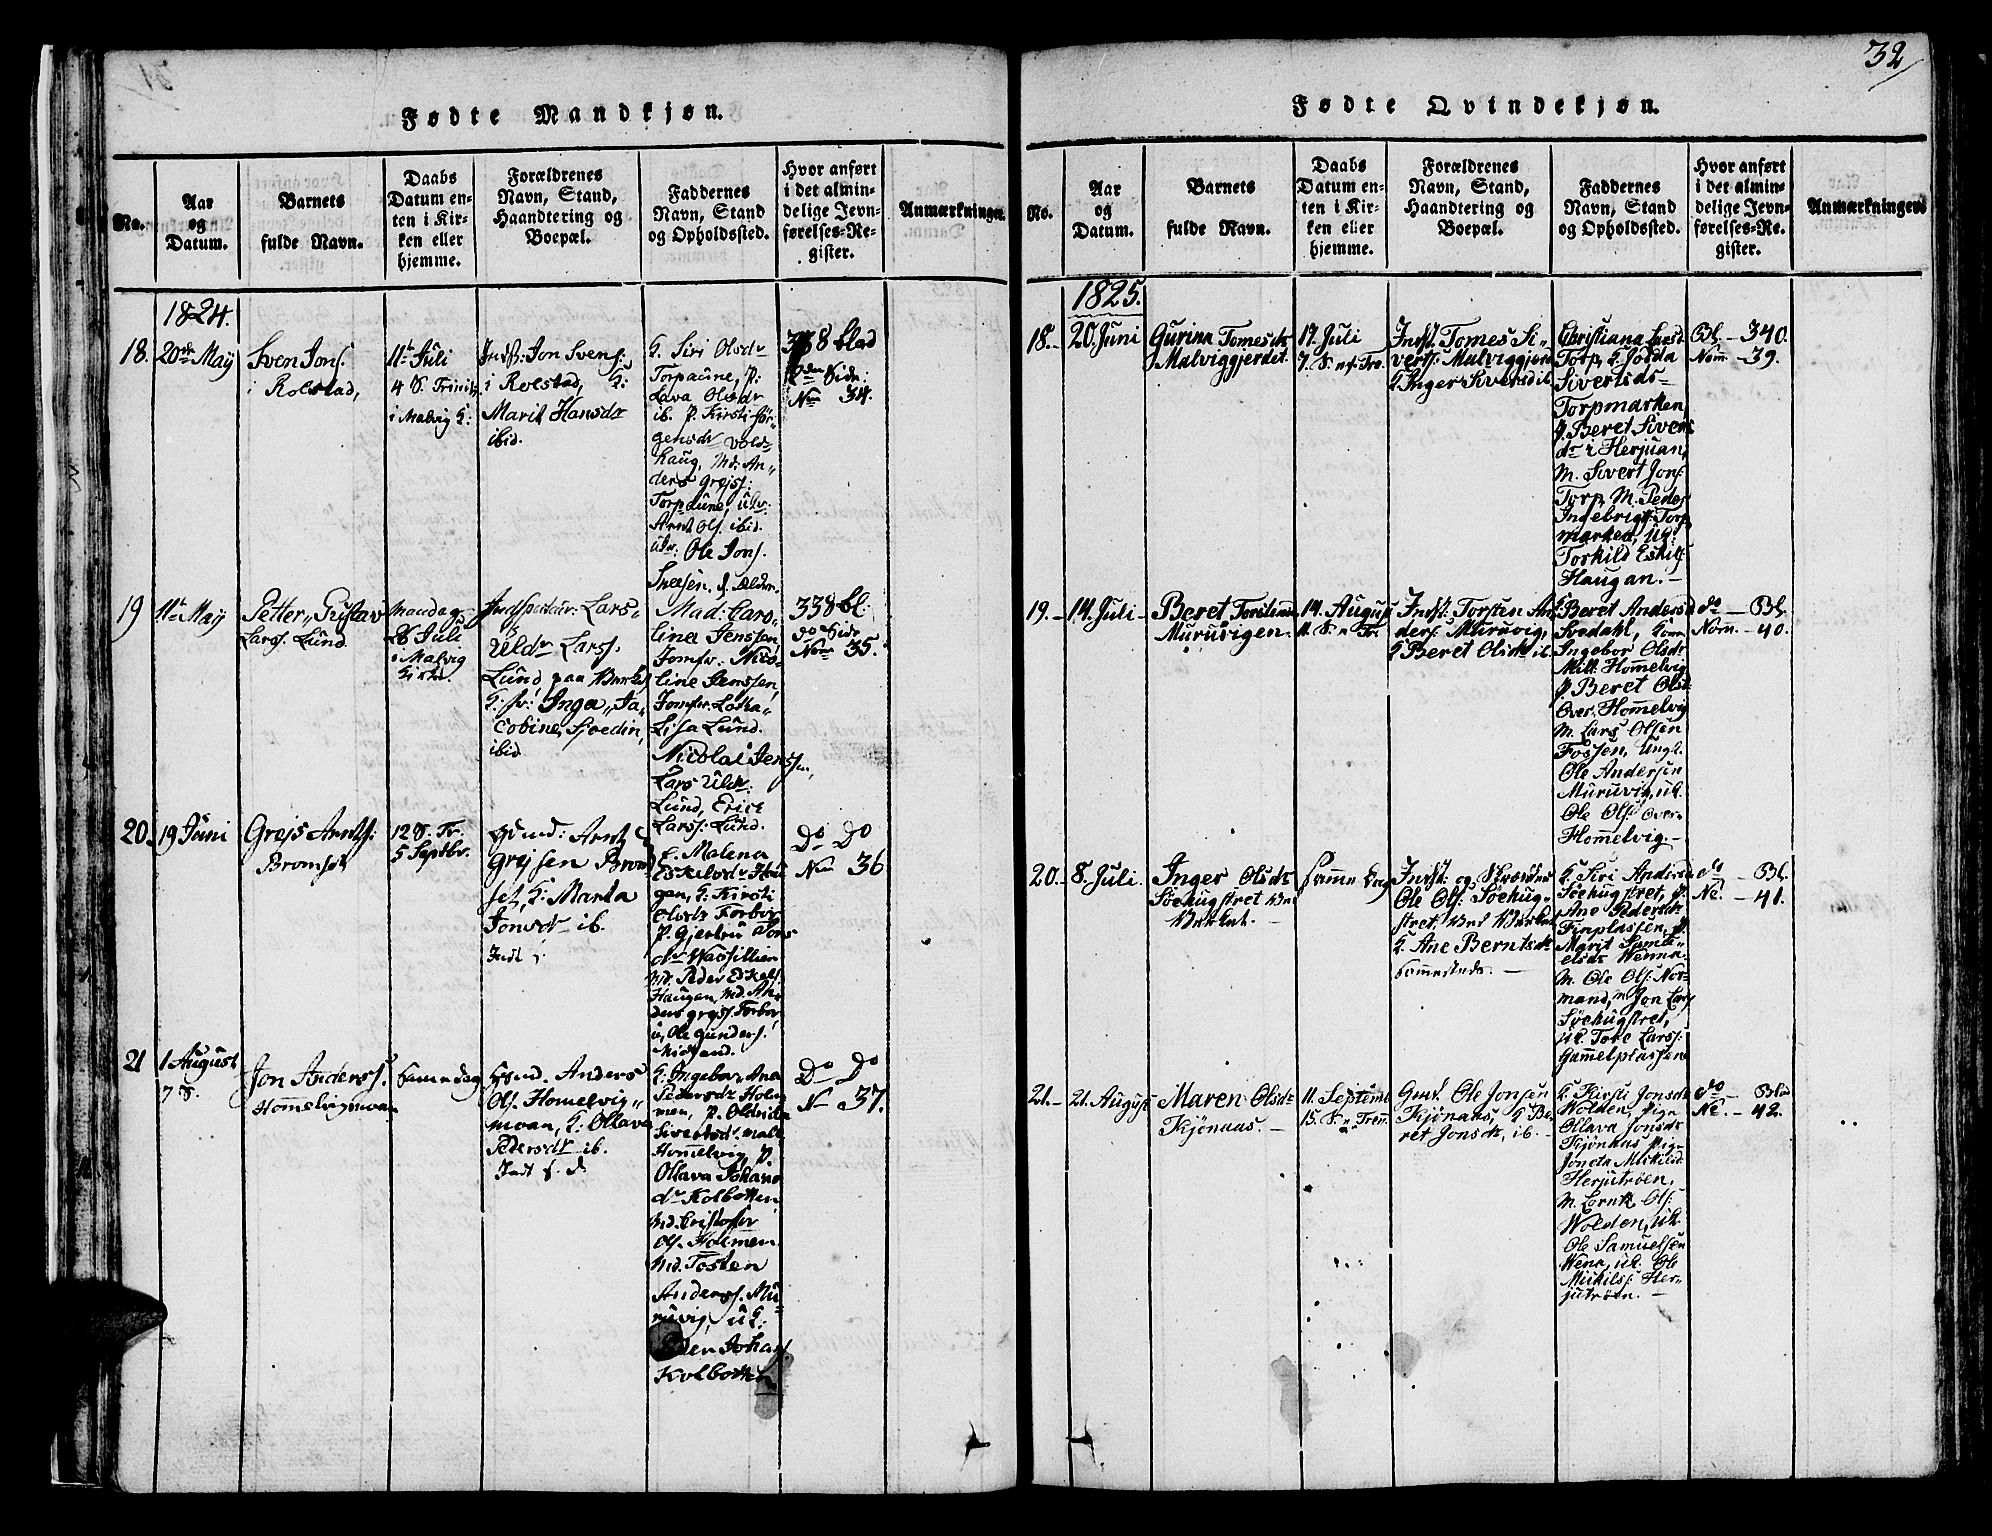 32
Fødte Mandkjøn.
No.
Aar
og
Datum.
Barnets
fulde Navn.
Daabs
Datum en-
ten i Kir-
ken eller
hjemme.
Forældrenes
Navn, Stand,
Haandtering og
Boepæl.
Faddernes
Navn, Stand
og Opholdssted.
Hvor anført
i det almin-
delige Jevn-
førelses-Re-
gister.
Anmærkninger
1824.
18.
20de May
Sven Jons.
i Rolstad,
11te Juli
4 S. Trinit.
i Malvig K.
Indst: Jon Svens:
i Rolstad, K:
Marit Hansdr
ibid.
K. Siri Olsdr
Torpaune, P.
Lava Olsdr
ib. P. Kirsti Jör-
gensdr Vold-
haug, Md. An-
ders Grejs:
Torpaune, Uk:
Arnt Ols. ibid
Ole Jons.
338 blad
2den Side
Nom 34.
19
11te May
Petter Gustav
Lars. Lund
Mandag
28 Juli
i Malvig
Kirke
Lars
Uldr Larss.
Lund paa
Inga Ja-
cobine Sjoedin,
ibid
Mad: Caro-
lina Jenssen,
Jomfr: Nico-
line Jenssen,
Jomfr Lovisa
Lisa Lund.
Nicolai Jenssen,
Lars Uldr:
Lund, Erick
Larss: Lund.
338 bl:
do Side
Nom 35.
20.
19 Juni
Grejs Arnts:
Bromset
12 S. Tr.
5 Septbr.
Gaard: Arnt
Grejsen Brom-
set, K: Marta
Jonsdr ib.
Indt
K. Malena
Eskelsdr Hau-
gen, K. Kirsti
Olsdr Forbor
P. Gjertru Jons
dr Wassillien
Md. Peder Eskels.
Haugan, Md. An-
ders Grejs. Forbor
u, Ole Gunders.
Midsand.
Do Do
Nom 36
21
1 August
7 S.
Jon Anderss.
Hommelvigmoan
Samme dag
Anders
Ols. Homelvig-
moan, K: Ollava
Pedersdr ib.
Indt f. d.
K. Ingebor Ana
Pedersdr Hol-
men, P. Oldrika
Sivertsdr. Malk
Hommelvig, P.
Ollava Johans
dr Kolbotten
Md. Cristofer
Ols. Holmen
Md. Tosten
Anderss. Mu-
ruvig, U K:
Peder Johans
Kolbotten
Do Do
N 37.
Fødte Qvindekjøn.
No.
Aar
og
Datum.
Barnets
fulde Navn.
Daabs
Datum en-
ten i Kir-
ken eller
hjemme.
Forældrenes
Navn, Stand,
Haandtering og
Boepæl.
Faddernes
Navn, Stand
og Opholdssted.
Hvor anført
i det almin-
delige Jevn-
førelses-Re-
gister.
Anmærkninger
1825.
18.
20. Juni
Gurina Tomesdr
Malviggjerdet.
17. Juli
7. S. ef. Tr.
Indst. Tomes Si-
verts: Malviggjerd
K Inger Sivertsd ib.
Christiana
Torp, K Jörda
Sivertsdr
Torpmarken,
P. Beret Sivers
dr i Herjuan,
M. Sivert Jons:
Torp, M. Peder
Ingebrigt: Torp-
marken, Uk:
Torkild Eskils
Haugan.
Bl. 340.
Nom. 39.
19.
14. Juli
Beret Torstensd
Muruvigen.
14. August
11. S. n Tr.
Indst: Torsten An-
ders: Muruvig,
K Beret Olsdr ib.
K Beret Andersd
Svedahl, Kone
Ingebor Olsdr
Mill: Hommelvig
P. Beret Olsd
Över Hommelvig
M. Lars Olsen
Fossen, Ungk.
Ole Andersen
Muruvig, uk.
Ole Ols: Över-
Hommelvig
do Bl.
Nom. 40.
20.
8. Juli.
Inger Olsdr
Söehugstret
samme Dag
Indst: og
Ole Ols: Söehug-
stret
K. Ane Berntsdr
sammesteds.
K Siri Andersd
Söehugstret,
Ane Pedersdr
Finplassen, P.
Marit Samu-
elsdr Wenna
M. Ole Ols: Nor-
mand, M Jon Lars
Söehugstret,
uk. Tore Larss:
Gammelplassen
do Bl.
No. 41.
21.
21. August
Maren Olsdr
Kjönaas
11. September
15. S. n Tren.
Ole Jonsen
Kjönaas, K Be-
ret Jonsdr, ib.
K. Kirsti Jonsdr
Wolden, Pige
Ollava Jonsdr
Kjönaas Pig.
Joneta Mikilsd:
Herjutröen,
M. Lornts Ols:
Wolden, uk.
Ole Samuelsen
Wena, uk. Ole
Mikilss: Her-
jutröen.
do Bl.
No. 42.